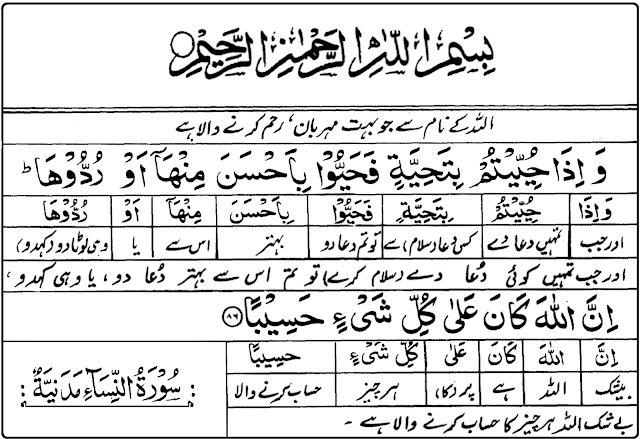 بِسْمِ اللهِ الرَّحْمٰنِ الرَّحِيْمِ
اللہ کے نام سے جو بہت مہربان، رحم کرنے والا ہے
وَ اِذَا حُيِّيْتُمْ بِتَحِيَّةٍ فَحَيُّوْا بِاَحْسَنَ مِنْهَآ اَوْ رُدُّوْهَا ؕ
وَاِذَا حُيِّيْتُمْ بِتَحِيَّةٍ فَحَيُّوْا بِاَحْسَنَ مِنْهَآ اَوْ رُدُّوْهَا
اور جب تمہیں دعا دے کسی دعا (سلام) سے تو تم دعا دو بہتر اس سے یا وہی لوٹا دو (کہدو)
اور جب تمہیں کوئی دُعا دے (سلام کرے) تو تم اس سے بہتر دُعا دو، یا وہی کہدو،
اِنَّ اللهَ كَانَ عَلٰى كُلِّ شَىْءٍ حَسِيْبًا ۸۶
اِنَّ اللهَ كَانَ عَلٰى كُلِّ شَىْءٍ حَسِيْبًا
بیشک اللہ ہے پر (کا) ہر چیز حساب کرنے والا
بے شک اللہ ہر چیز کا حساب کرنے والا ہے -
: سُوْرَةُ النِّسَآءِ مَدَنِيَّةٌ :